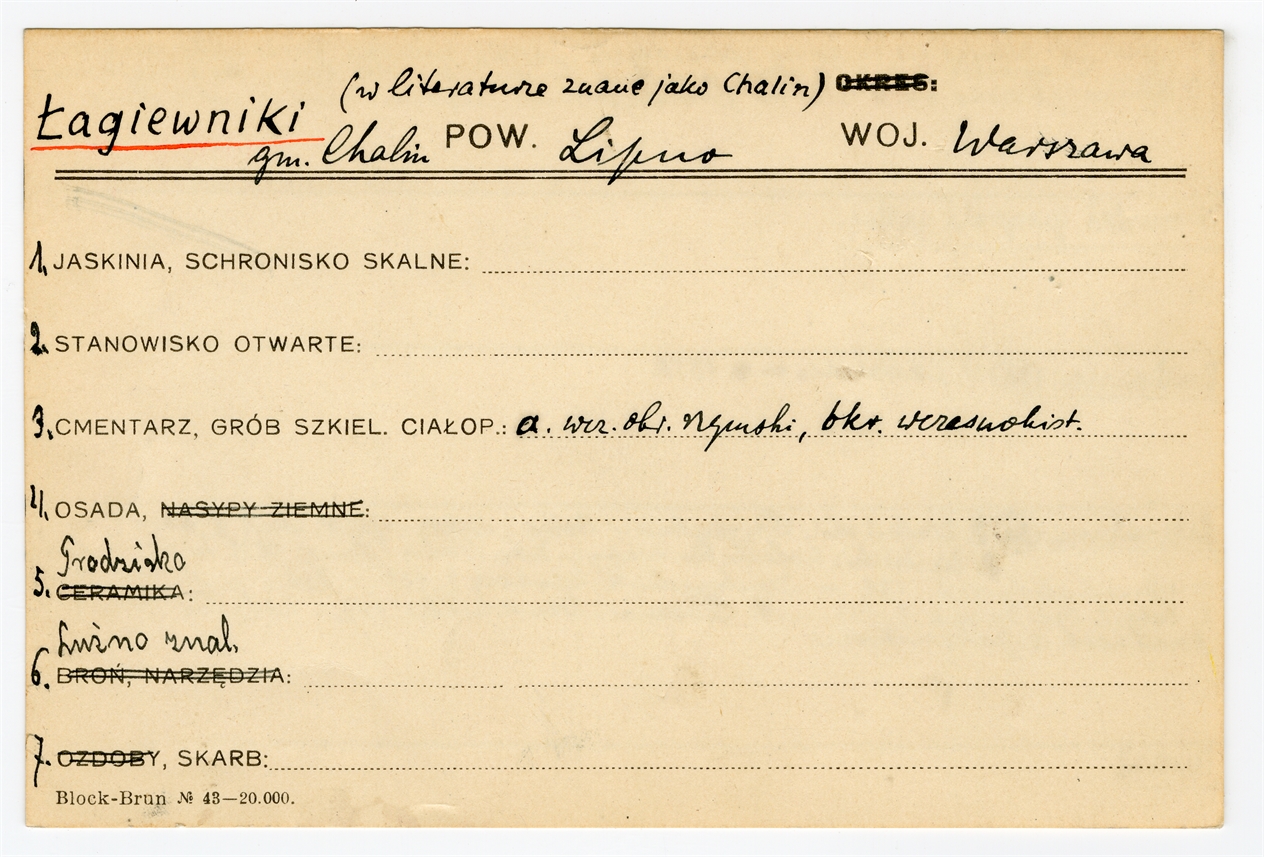 (w literaturze znane jako Chalin) OKRES:
Łagiewniki gm. Chalin POW. Lipno WOJ. Warszawa
1. JASKINIA, SCHRONISKO SKALNE:
2. STANOWISKO OTWARTE:
3. CMENTARZ, GRÓB SZKIEL. CIAŁOP.: a. wcz. okr. rzymski, okr. wczesnohist.
4. OSADA, NASYPY ZIEMNE:
Grodzisko
5. CERAMIKA:
Luźno znal.
6. BROŃ, NARZĘDZIA:
7. OZDOBY, SKARB:
Block-Brun № 43—20.000.